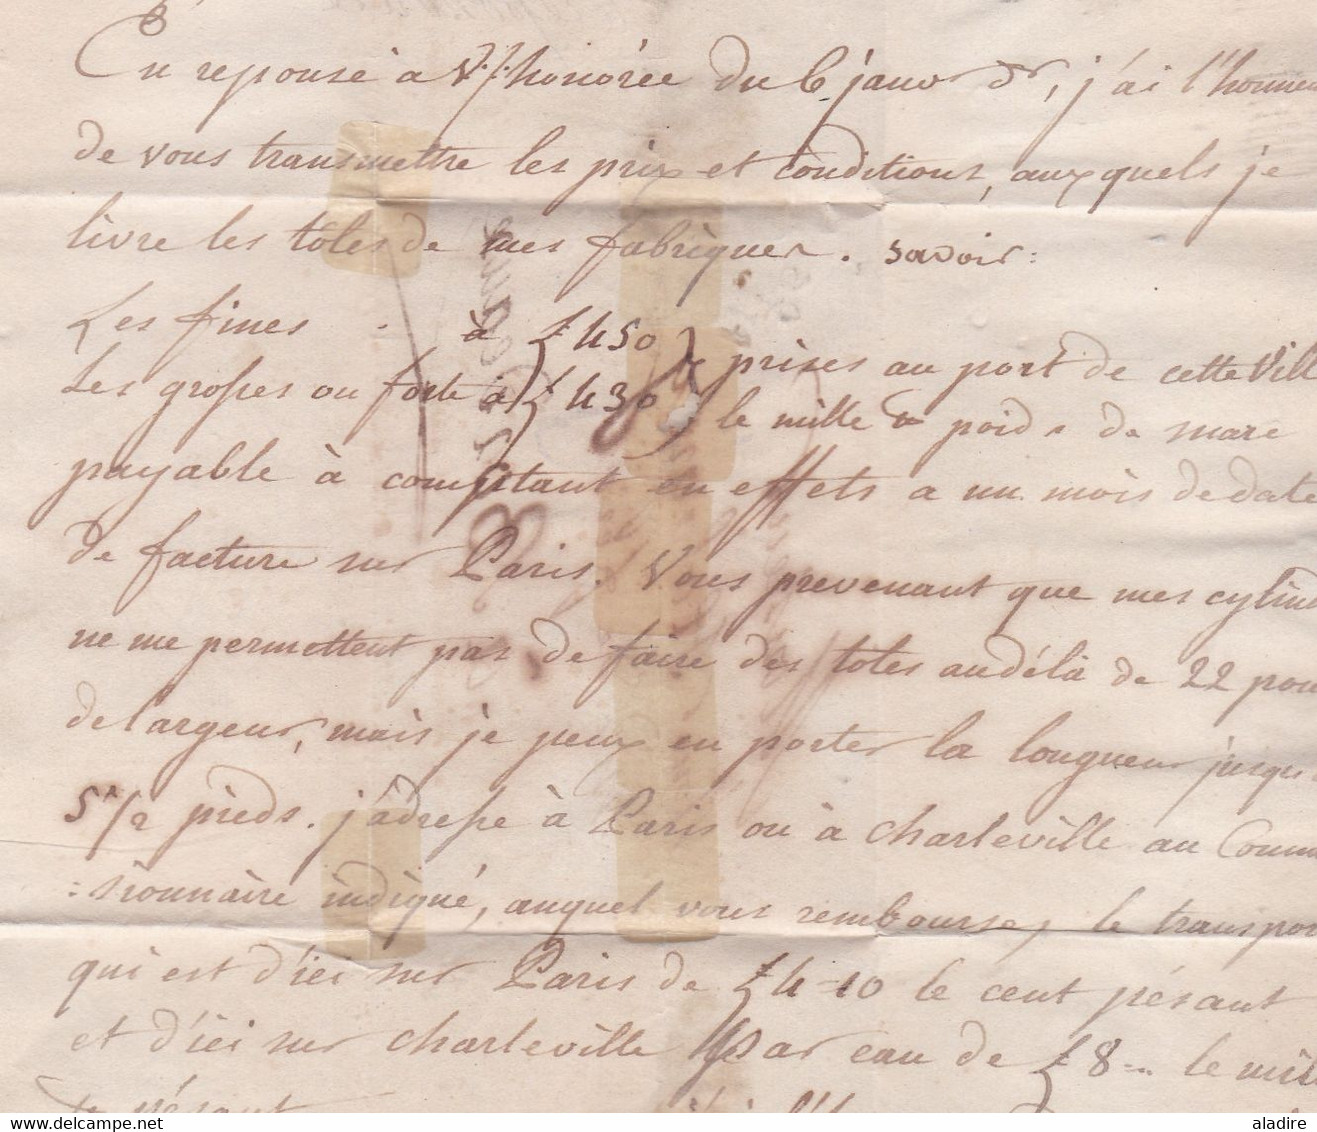 En reponse à v/honorée du 6 janvr dr, j'ai l'honneu
de vous transmettre les prix et conditions, auxquels je
livre les tôles de mes fabriques. Savoir:
Les fines à £ 450 prises au port de cette Vill
Les grosses ou forte à £ 430 le mille poids de marc
payable à comptant en effets a un mois de date
de facture sur Paris. Vous prevenant que mes cylind
ne me permettent pas de faire des toles audélà de 22 pou
de largeur, mais je peux en porter la longueur jusqu'
5 1/2 pieds. j'adresse à Paris ou à Charleville au Comm
=sionnaire indiqué, auquel vous rembourserez le transpor
qui est d'ici sur Paris de £ 4-10 le cent pésant
et d'ici sur Charleville par eau de £ 8 = le mill
pésant
aladire | delcampe.net